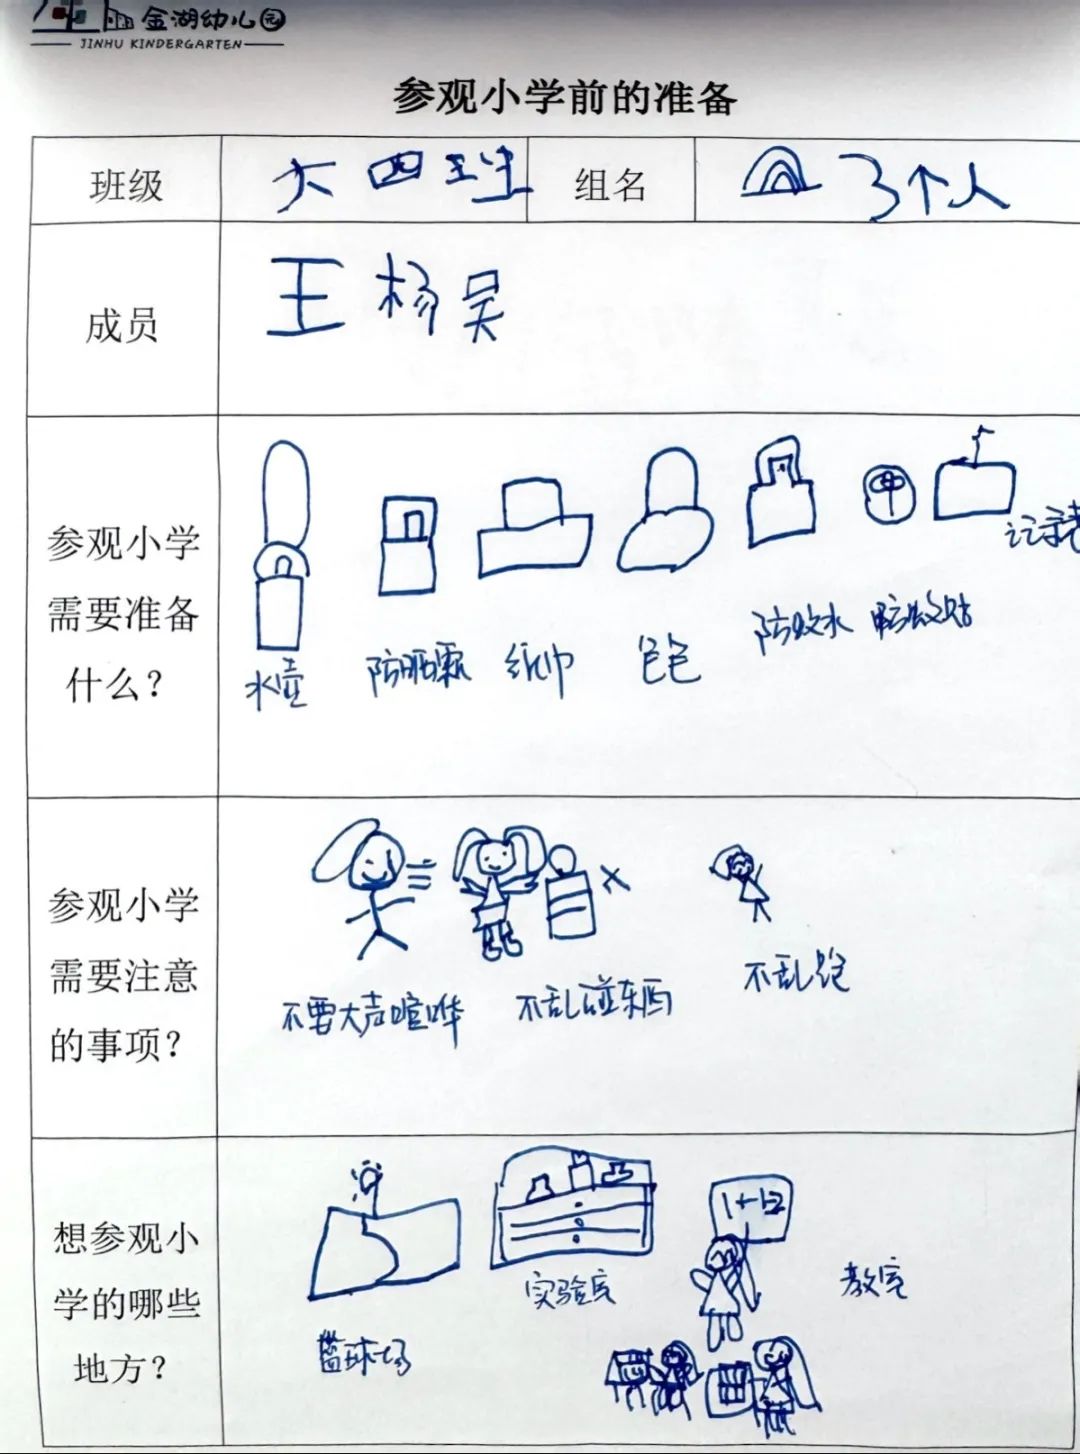 金湖幼儿园
JINHU KINDERGARTEN
参观小学前的准备
班级 大四班 组名 3个人
成员 王 杨 吴
参观小学
需要准备
什么？
记录表
水壶 防晒霜 纸巾 包包 防蚊水 防蚊贴
参观小学
需要注意
的事项？
不要大声喧哗 不乱碰东西 不乱跑
想参观小
学的哪些
地方？
1+12
篮球场 实验室 教室